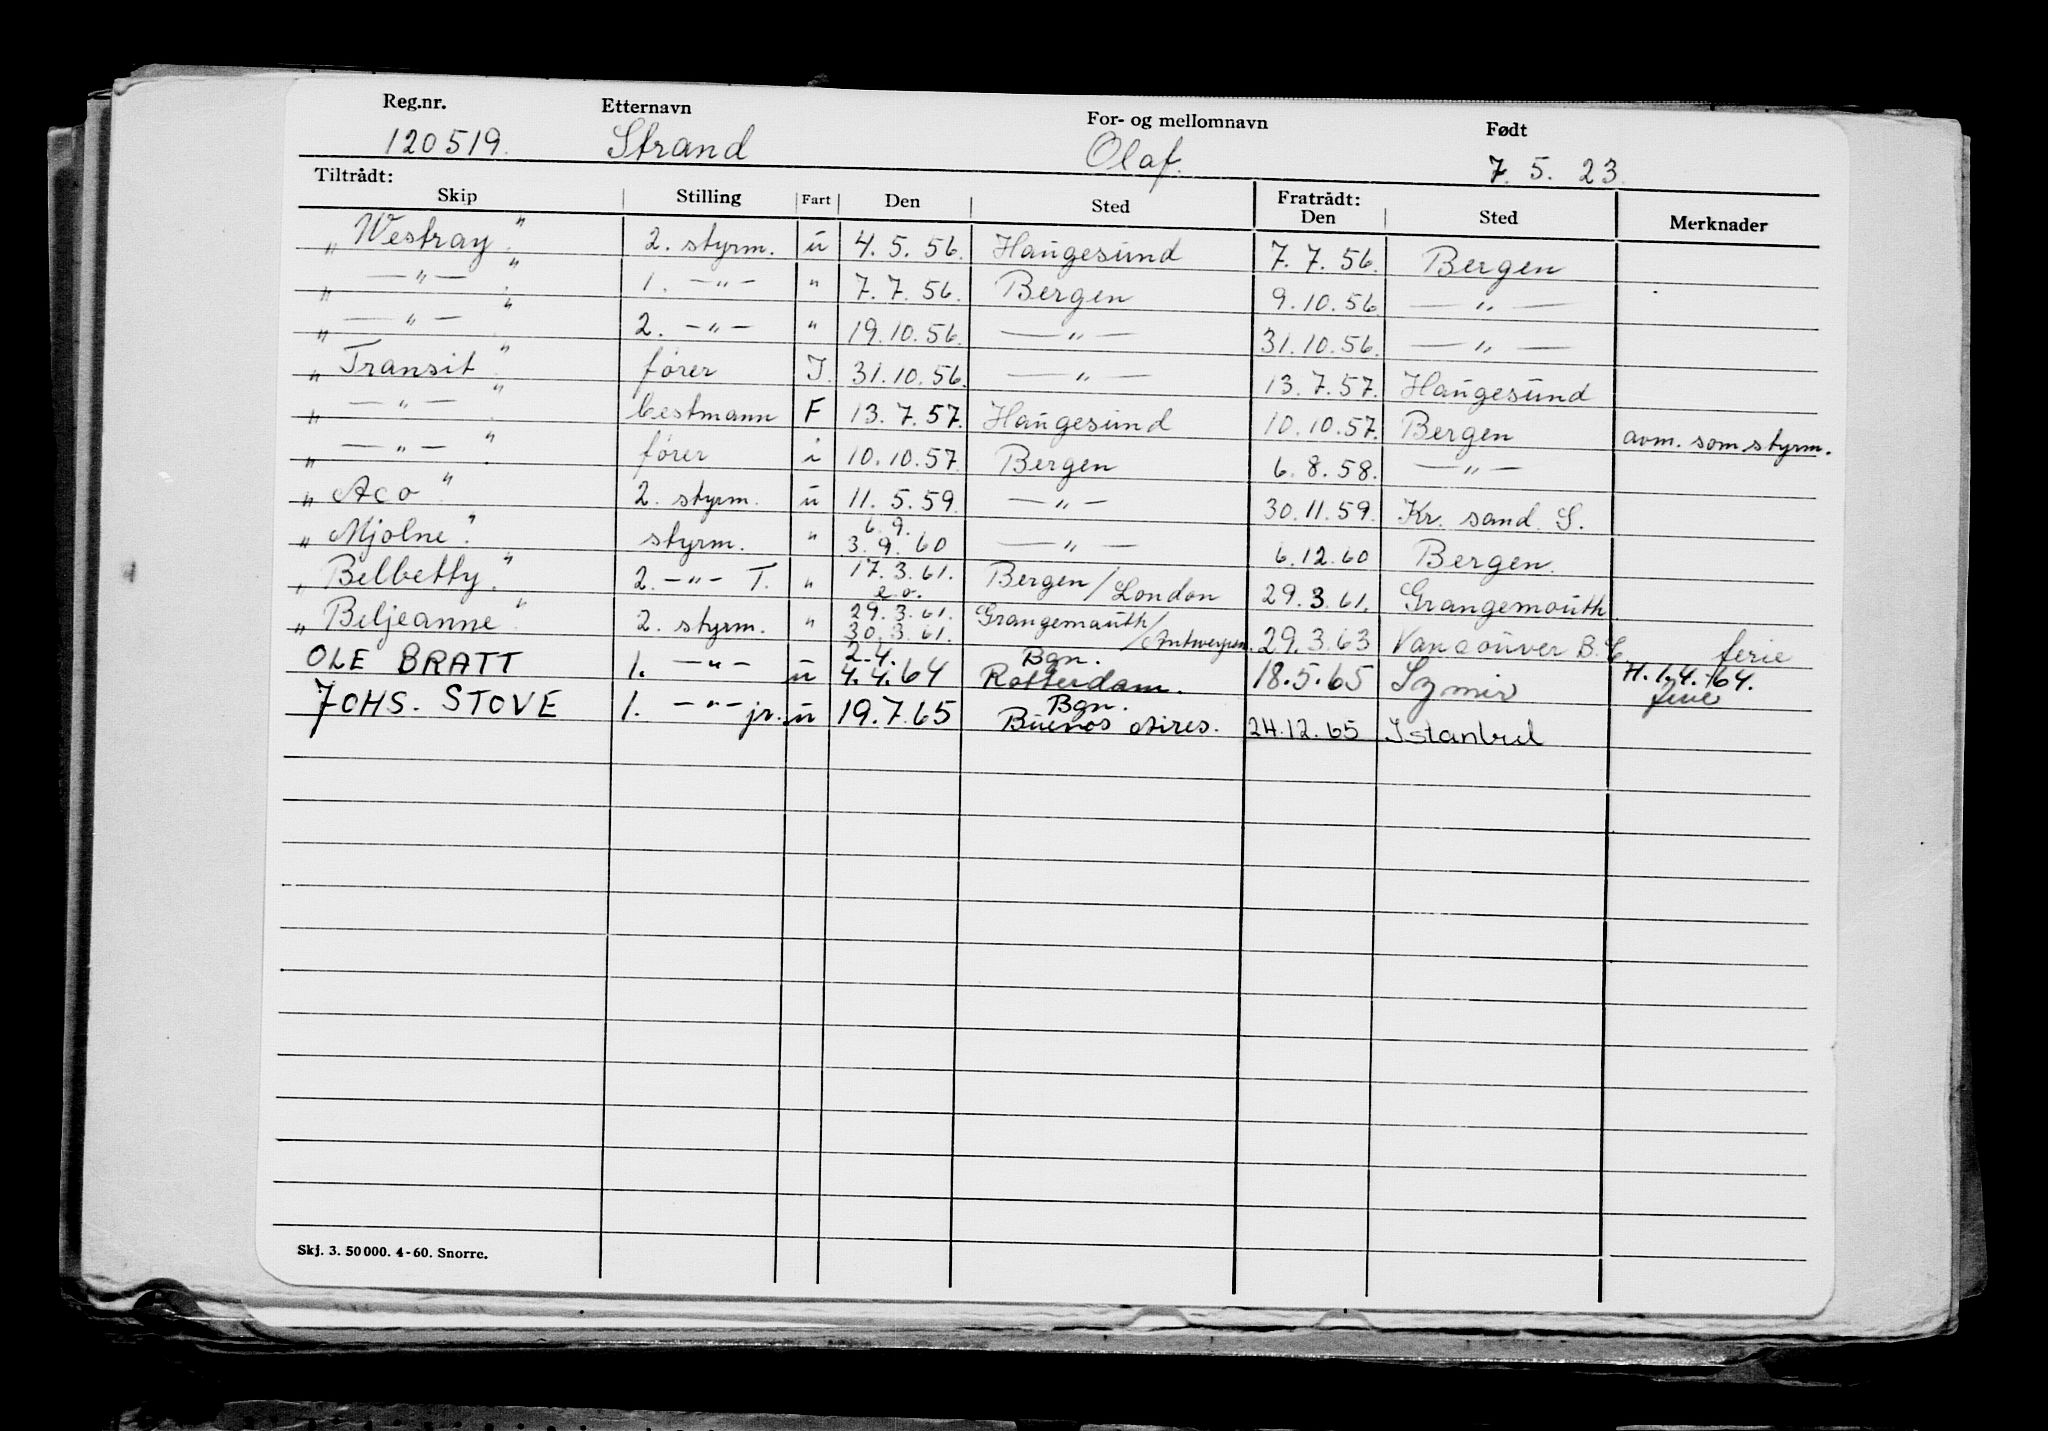 Reg.nr. Etternavn For- og mellomnavn Født
120519. Strand Olaf. 7. 5. 23.
Tiltrådt: Fratrådt:
Skip Stilling Fart Den Sted Den Sted Merknader
„ Westray." 2. styrm. u 4. 5. 56. Haugesund 7. 7. 56. Bergen
„ —"— " 1. —"— " 7. 7. 56. Bergen 9. 10. 56. —"—
„ —"— " 2. —"— " 19. 10. 56. —"— 31. 10. 56. —"—
„ Transit." fører I. 31. 10. 56. —"— 13. 7. 57. Haugesund
„ —"— ." bestmann F 13. 7. 57. Haugesund 10. 10. 57. Bergen avm. som styrm.
„ —"— ." fører i 10. 10. 57. Bergen 6. 8. 58. —"—
„ Aco." 2. styrm. u 11. 5. 59. —"— 30. 11. 59. Kr. sand. S.
„ Mjølne." styrm. " 6. 9. 3. 9. 60 —"— 6. 12. 60 Bergen.
„ Belbetty." 2. —"— T. " 17. 3. 61. e.o. Bergen/London 29. 3. 61. Grangemouth
„ Beljeanne." 2. styrm. " 29. 3. 61. 30. 3. 61. Grangemouth/Antwerpen 29. 3. 63 Vancouver B.C. ferie
OLE BRATT 1. —"— u 2.4. 4. 4. 64 Bgn. Rotterdam. 18. 5. 65 Izmir H. 1. 4. -64. ferie
JOHS. STOVE 1. —"— jr. u 19. 7. 65 Bgn. Buenos Aires. 24. 12. 65 Istanbul
Skj. 3. 50 000. 4-60. Snorre.